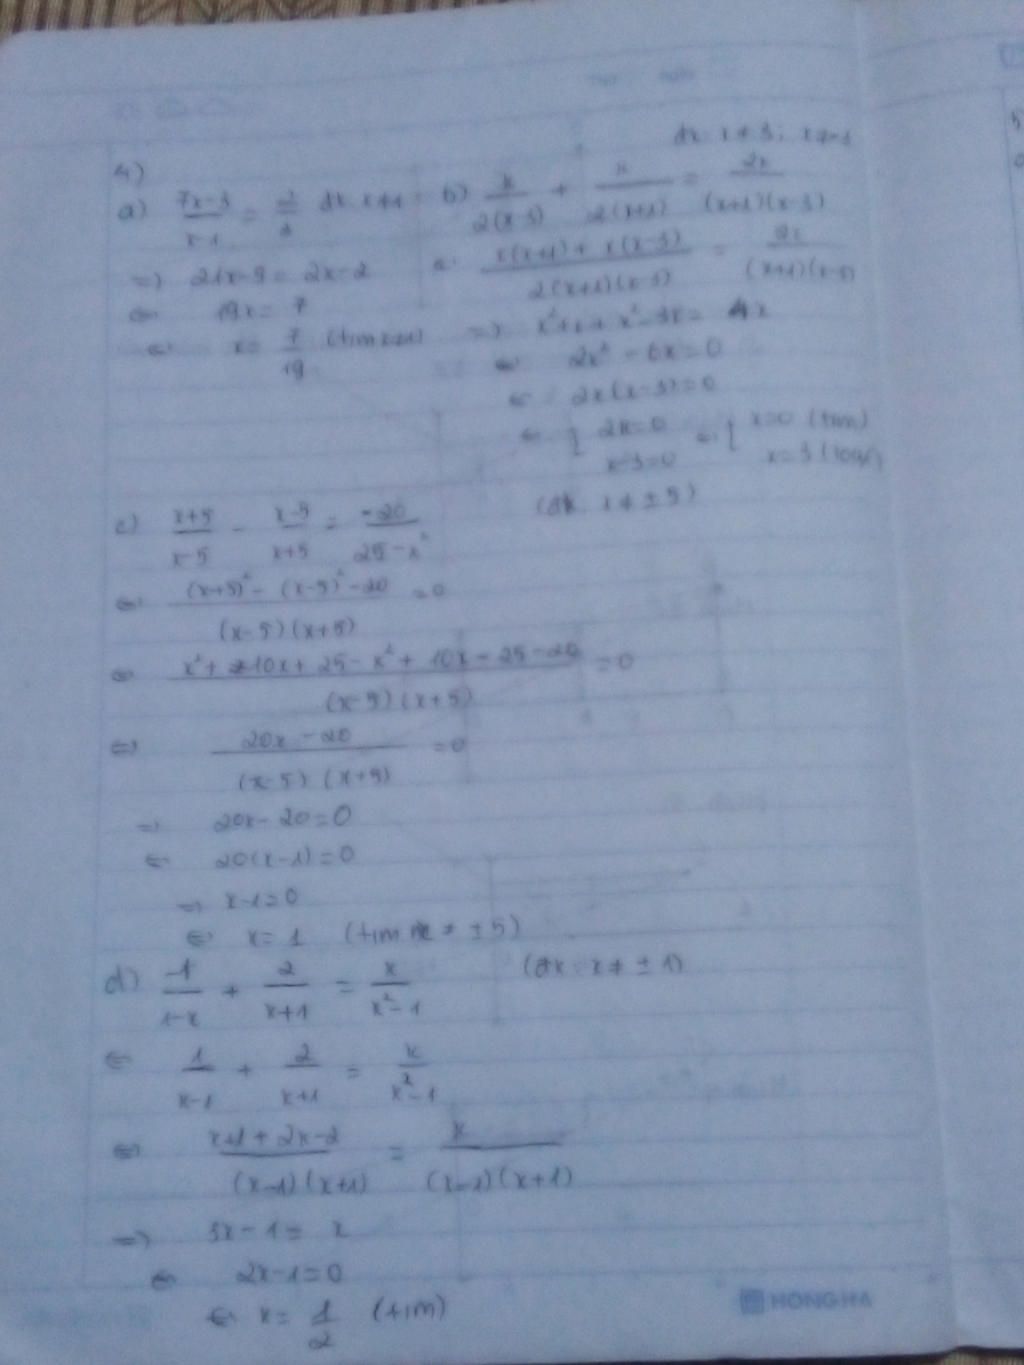 4)
a) (7x-3)/(x-1) = 2/3 đk x≠1
=> 21x-9 = 2x-2
<=> 19x = 7
<=> x = 7/19
b) x/(2(x-3)) + x/(2(x+1)) = 2x/((x+1)(x-3))
đk x≠3; x≠-1
<=> (x(x+1) + x(x-3))/(2(x+1)(x-3)) = 2x/((x+1)(x-3))
=> x²+x+x²-3x = 4x
<=> 2x²-6x=0
<=> 2x(x-3)=0
<=> [ 2x=0 <=> [ x=0 (tm)
x-3=0 x=3 (loại)
c) (x+5)/(x-5) - (x-5)/(x+5) = -20/(25-x²) (đk x≠±5)
<=> ((x+5)² - (x-5)² - 20)/((x-5)(x+5)) = 0
<=> (x²+10x+25-x²+10x-25-20)/((x-5)(x+5)) = 0
<=> (20x-20)/((x-5)(x+5)) = 0
=> 20x-20=0
<=> 20(x-1)=0
=> x-1=0
<=> x=1 (tm x≠±5)
d) -1/(1-x) + 2/(x+1) = x/(x²-1) (đk x≠±1)
<=> 1/(x-1) + 2/(x+1) = x/(x²-1)
<=> (x+1+2x-2)/((x-1)(x+1)) = x/((x-1)(x+1))
=> 3x-1= x
<=> 2x-1=0
<=> x= 1/2 (tm)
HONG HA